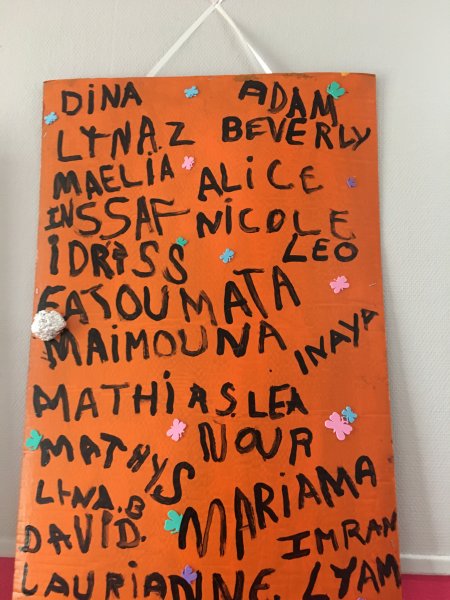 DINA ADAM
LYNA.Z BEVERLY
MAELIA ALICE
INSSAF NICOLE
IDRISS LEO
FATOUMATA
MAIMOUNA INAYA
MATHIAS LEA
MATHYS NOUR
LYNA.B MARIAMA
DAVID. IMRAN
LAURIANNE. LYAM